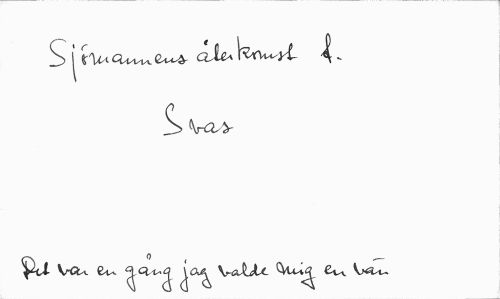 Sjömannens återkomst f.
Svas
Det var en gång jag valde mig en vän